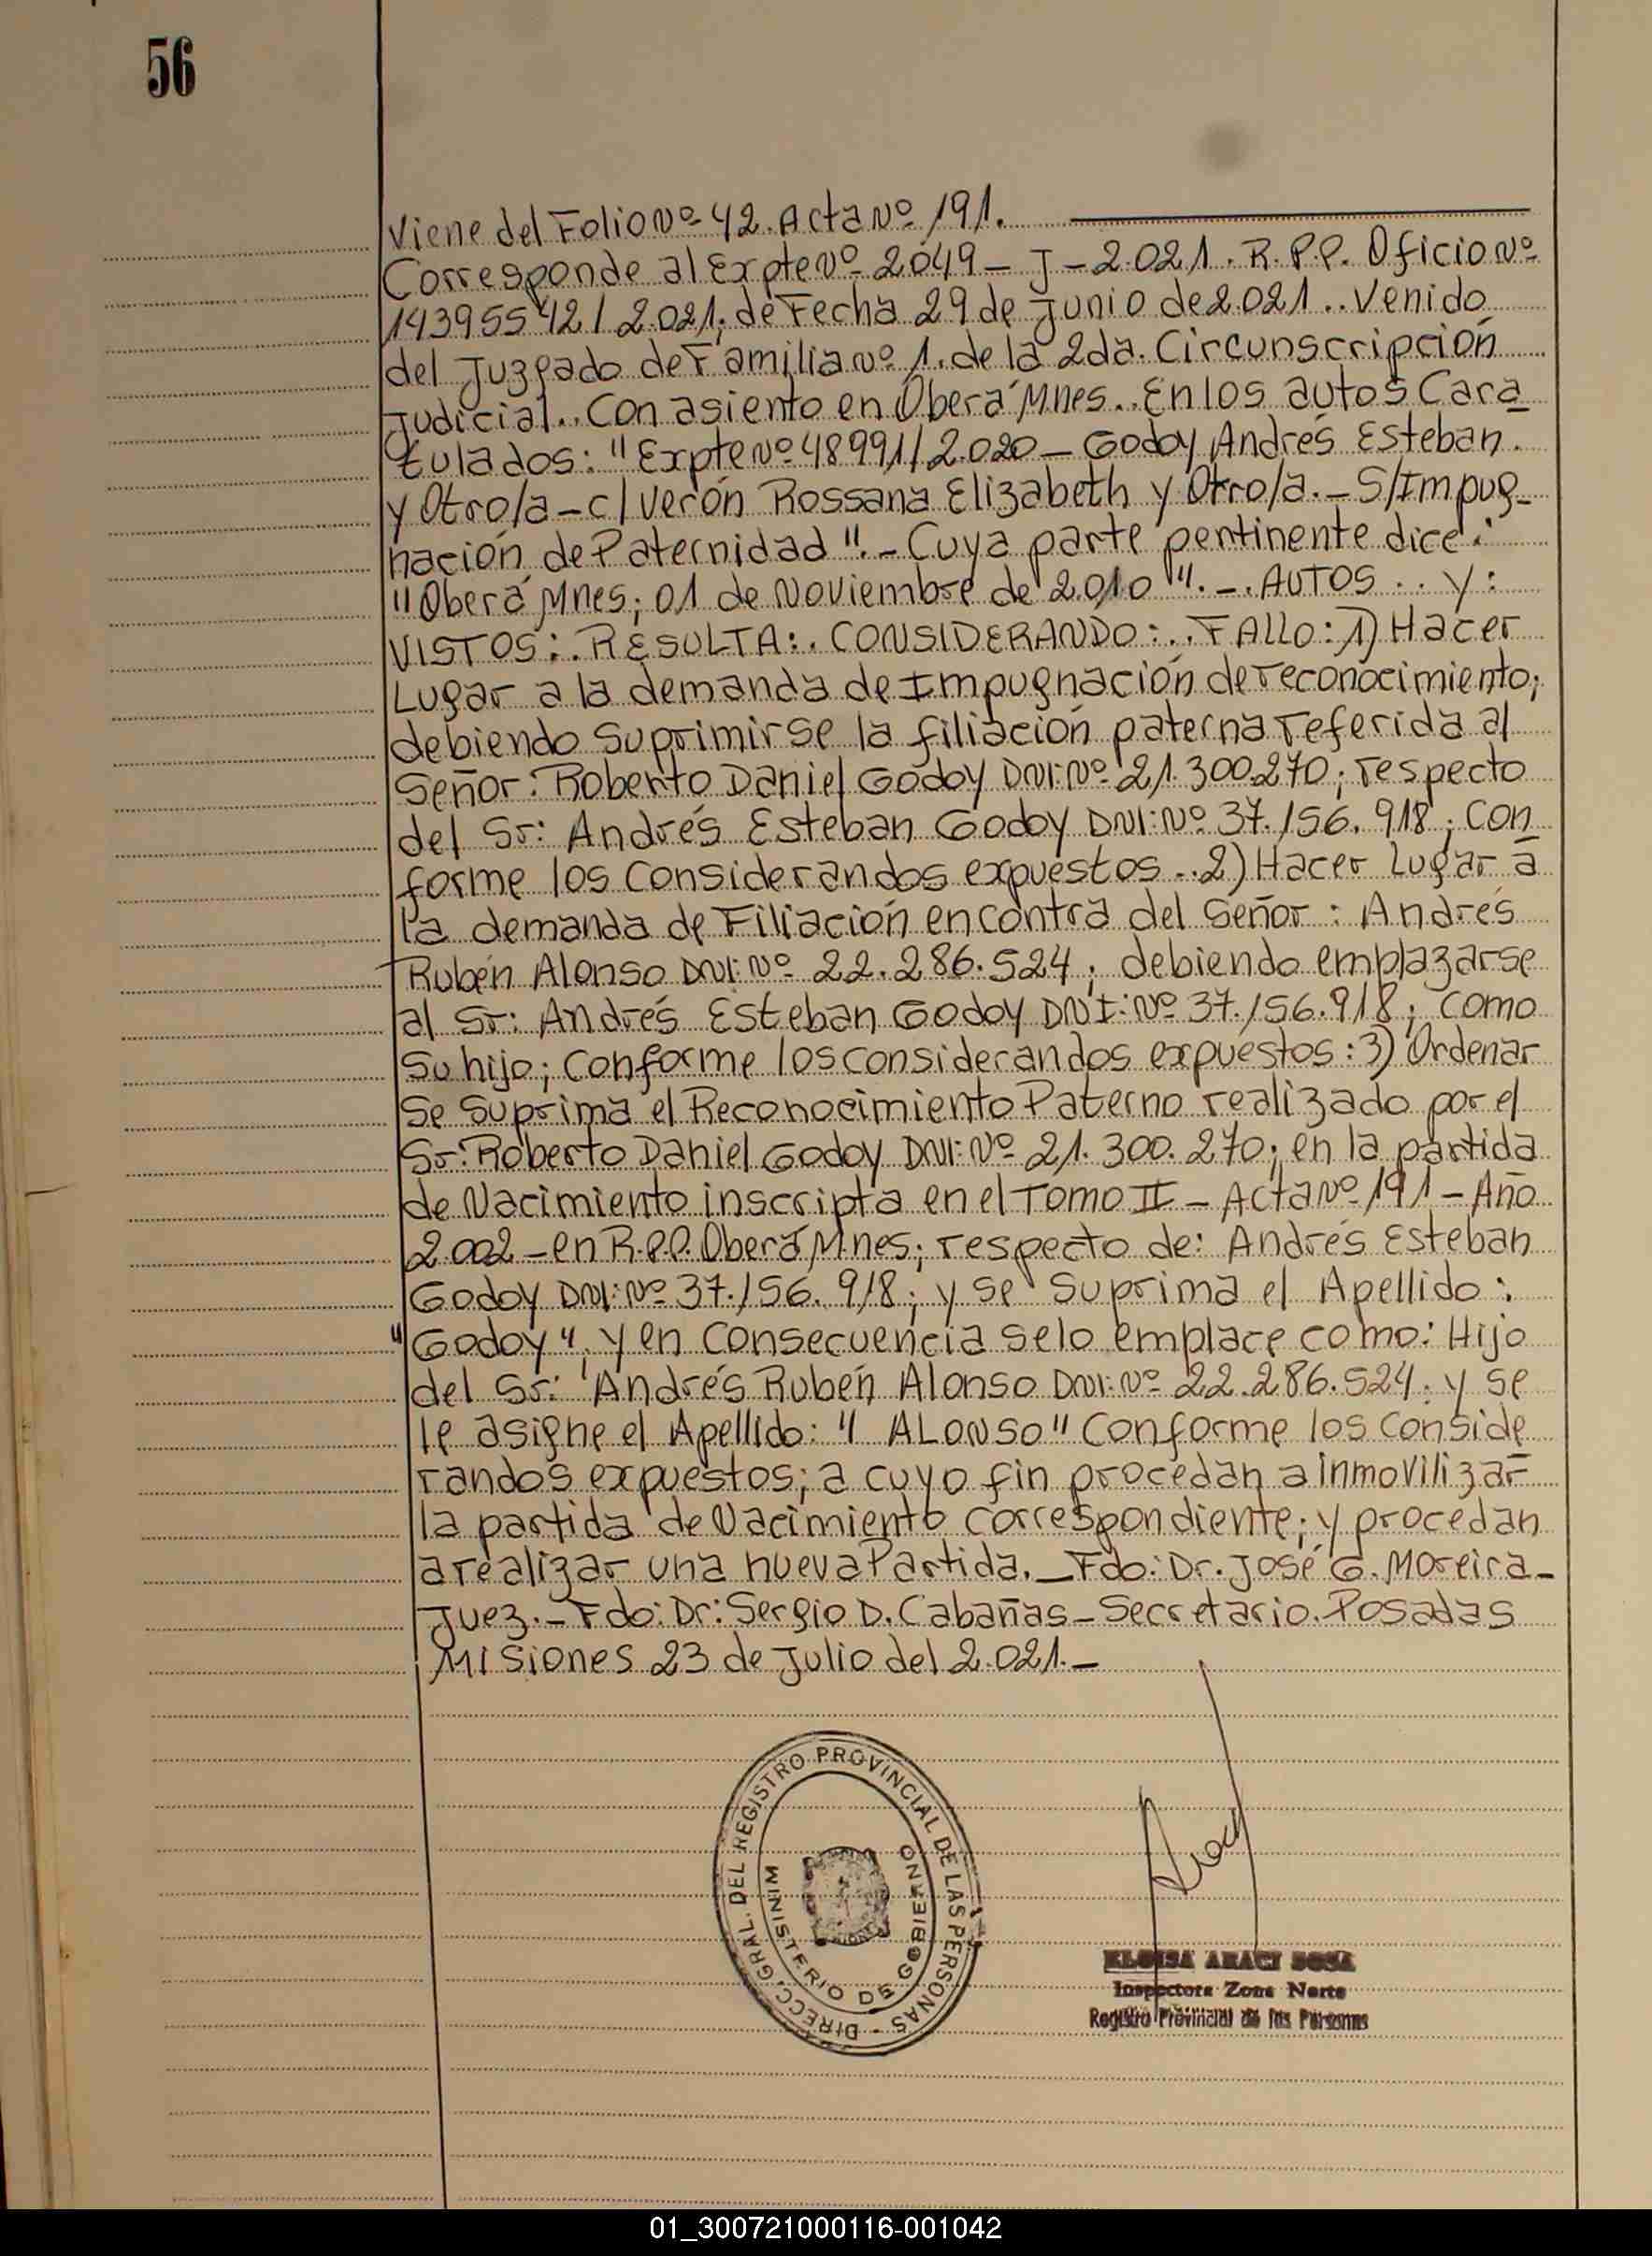 56
Viene del Folio Nº 42. Acta Nº 191.
Corresponde al Expte Nº 2049 - J - 2.021. R.P.P. Oficio Nº
143955542 / 2.021; de Fecha 29 de Junio de 2021.. Venido
del Juzgado de Familia Nº 1. de la 2da. Circunscripción
Judicial.. Con asiento en Oberá Mnes.. En los autos Cara
tulados: "Expte Nº 48991/2.020 - Godoy Andrés Esteban.
y Otro/a - c/ Verón Rossana Elizabeth y Otro/a. - S/Impug-
nación de Paternidad". - Cuya parte pentinente dice:
"Oberá Mnes; 01 de Noviembre de 2.010". -. AUTOS .. Y:
VISTOS:. RESULTA:. CONSIDERANDO:.. FALLO: 1) Hacer
Lugar a la demanda de Impugnación de reconocimiento;
debiendo suprimirse la filiación paterna referida al
Señor: Roberto Daniel Godoy DNI: Nº 21.300.270; respecto
del Sr: Andrés Esteban Godoy DNI: Nº 37.156.918; Con
forme los Considerandos expuestos.. 2) Hacer Lugar a
la demanda de Filiación en contra del Señor: Andrés
Rubén Alonso DNI: Nº 22.286.524; debiendo emplazarse
al Sr: Andrés Esteban Godoy DNI: Nº 37.156.918; Como
Su hijo; Conforme los considerandos expuestos: 3) Ordenar
Se Suprima el Reconocimiento Paterno realizado por el
Sr: Roberto Daniel Godoy DNI: Nº 21.300.270; en la partida
de Nacimiento inscripta en el Tomo II - Acta Nº 191 - Año
2.002 - en R.P.P. Oberá Mnes; respecto de: Andrés Esteban
Godoy DNI: Nº 37.156.918; y se Suprima el Apellido:
"Godoy", y en Consecuencia se lo emplace como: Hijo
del Sr: Andrés Rubén Alonso DNI: Nº 22.286.524. y se
le asigne el Apellido: "ALONSO" Conforme los Conside
randos expuestos; a cuyo fin procedan a inmovilizar
la partida de Nacimiento correspondiente; y procedan
a realizar una nueva Partida. - Fdo: Dr. José G. Moreira -
Juez. - Fdo: Dr: Sergio D. Cabañas - Secretario. Posadas
Misiones 23 de Julio del 2.021. -
DIRECC. GRAL. DEL REGISTRO PROVINCIAL DE LAS PERSONAS -
MINISTERIO DE GOBIERNO
ELOISA ARACI SOSA
Inspectora Zona Norte
Registro Provincial de las Personas
01_300721000116-001042